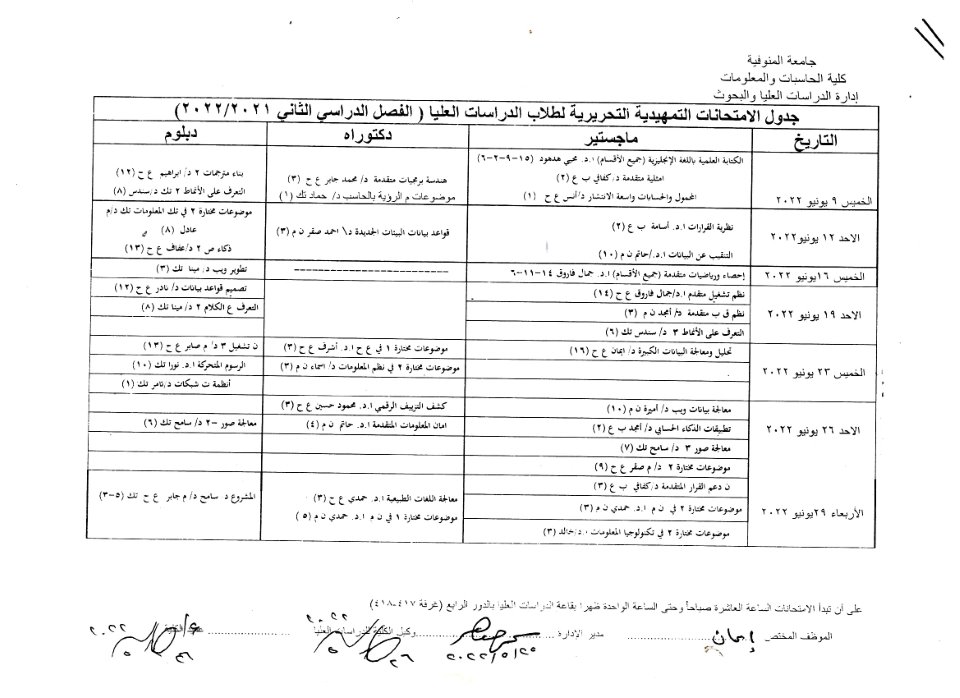 جامعة المنوفية
كلية الحاسبات والمعلومات
إدارة الدراسات العليا والبحوث
جدول الامتحانات التمهيدية التحريرية لطلاب الدراسات العليا ( الفصل الدراسي الثاني ٢٠٢٢/٢٠٢١)
التاريخ
ماجستير
دكتوراه
دبلوم
الخميس ٩ يونيو ٢٠٢٢
الكتابة العلمية باللغة الإنجليزية (جميع الأقسام) ا.د. محيي هدهود (١٥-٩-٢-٦)
امثلية متقدمة د/كفافي ب ع (٢)
المحمول والحسابات واسعة الانتشار د/أنس ع ح (١)
هندسة برمجيات متقدمة د/ محمد جابر ع ح (٣)
موضوعات م الرؤية بالحاسب د/ حماد تك (١)
بناء مترجمات ٢ د/ ابراهيم ع ح (١٢)
التعرف على الأنماط ٢ تك د/سندس (٨)
الاحد ١٢ يونيو٢٠٢٢
نظرية القرارات ا.د. أسامة ب ع (٢)
التنقيب عن البيانات ا.د./حاتم ن م (١٠)
قواعد بيانات البيئات الجديدة د\ احمد صقر ن م (٣)
موضوعات مختارة ٢ في تك المعلومات تك د/م
عادل (٨)
ذكاء ص ٢ د/عفاف ع ح (١٣)
الخميس ١٦يونيو ٢٠٢٢
إحصاء ورياضيات متقدمة (جميع الأقسام) ا.د. جمال فاروق ١٤-١١-٦
----------------------
تطوير ويب د/ مينا تك (٣)
الاحد ١٩ يونيو ٢٠٢٢
نظم تشغيل متقدم ا.د/جمال فاروق ع ح (١٤)
نظم ق ب متقدمة د/ أمجد ن م (٣)
التعرف على الأنماط ٣ د/ سندس تك (٦)
تصميم قواعد بيانات د/ نادر ع ح (١٢)
التعرف ع الكلام ٢ د/مينا تك (٨)
الخميس ٢٣ يونيو ٢٠٢٢
تحليل ومعالجة البيانات الكبيرة د/ ايمان ع ح (١٦)
موضوعات مختارة ١ في ع ح ا.د. أشرف ع ح (٣)
موضوعات مختارة ٢ في نظم المعلومات د/ اسماء ن م (٣)
ن تشغيل ٣ د/ م صابر ع ح (١٣)
الرسوم المتحركة ا.د. نورا تك (١٠)
أنظمة ت شبكات د/تامر تك (١)
الاحد ٢٦ يونيو ٢٠٢٢
معالجة بيانات ويب د/ أميرة ن م (١٠)
تطبيقات الذكاء الحسابي د/ أمجد ب ع (٢)
معالجة صور ٣ د/ سامح تك (٧)
موضوعات مختارة ٢ د/ م صقر ع ح (٩)
كشف التزييف الرقمي ا.د. محمود حسين ع ح (٣)
امان المعلومات المتقدمة ا.د. حاتم ن م (٤)
معالجة صور -٢ د/ سامح تك (٦)
الأربعاء ٢٩يونيو ٢٠٢٢
ن دعم القرار المتقدمة د/كفافي ب ع (٣)
موضوعات مختارة ٢ في ن م ا.د. حمدي ن م (٣)
موضوعات مختارة ٢ في تكنولوجيا المعلومات ا.د/خالد (٣)
معالجة اللغات الطبيعية ا.د. حمدي ع ح (٣)
موضوعات مختارة ١ في ن م ا.د. حمدي ن م (٥)
المشروع د. سامح د/ م جابر ع ح تك (٥-٣)
على أن تبدأ الامتحانات الساعة العاشرة صباحاً وحتى الساعة الواحدة ظهرا بقاعة الدراسات العليا بالدور الرابع (غرفة ٤١٧-٤١٨)
الموظف المختص إيمان مدير الادارة وكيل الكلية للدراسات العليا عميد الكلية
٢٠٢٢/٥/٢٥